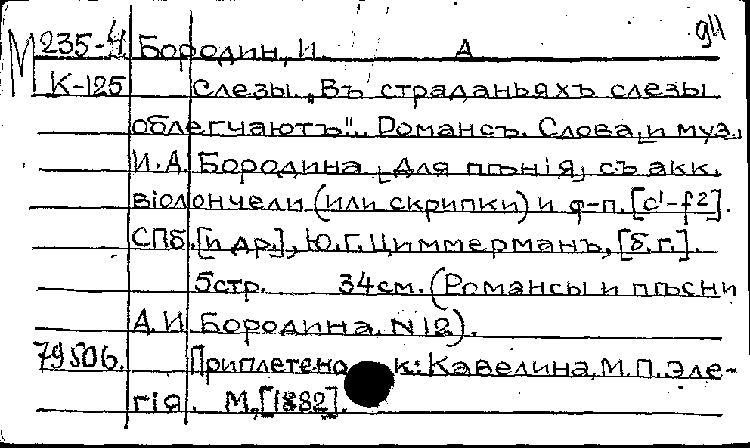 М 235-4 Бородин, И. А 94
К-125 Слезы. „Въ страданьяхъ слезы
облегчаютъ". Романсъ. Слова и муз.
И.А. Бородина. Для пѣнія, съ акк.
віолончели (или скрипки) и ф-п. [c¹-f²].
СПб. [и др.], Ю.Г. Циммерманъ, [б.г.].
5стр. 34см. (Романсы и пѣсни
А.И. Бородина. N 12).
79506. Приплетено к: Кавелина, М.П. Эле-
гія. М., [1882].